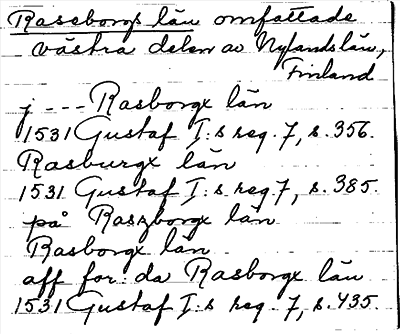 Raseborgs län omfattade
västra delen av Nylands län,
Finland
j --- Rasborgx län
1531 Gustaf I:s reg. 7, s. 356.
Rasburgx län
1531 Gustaf I:s reg 7, s. 385.
på Raszborgx län
Rasborgx län
aff for:da Rasborgx län
1531 Gustaf I:s reg. 7, s. 435.